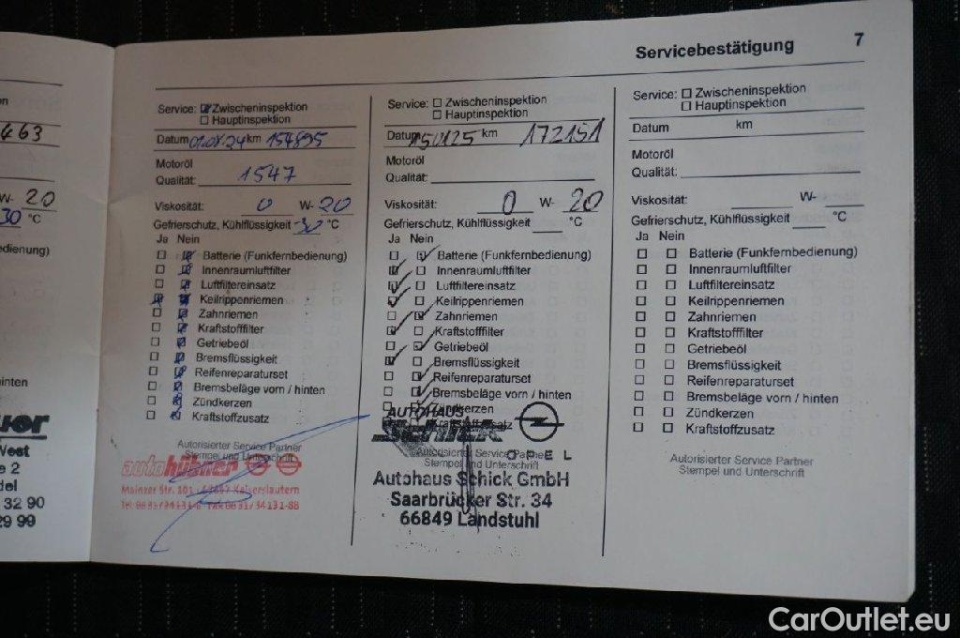 Servicebestätigung 7
463
W- 20
30 °C
edienung)
inten
uer
West
e 2
del
32 90
29 99
Service: Zwischeninspektion
Hauptinspektion
Datum 01.08.24 km 154895
Motoröl
Qualität: 1547
Viskosität: 0 W- 20
Gefrierschutz, Kühlflüssigkeit -30 °C
Ja Nein
Batterie (Funkfernbedienung)
Innenraumluftfilter
Luftfiltereinsatz
Keilrippenriemen
Zahnriemen
Kraftstofffilter
Getriebeöl
Bremsflüssigkeit
Reifenreparaturset
Bremsbeläge vorn / hinten
Zündkerzen
Kraftstoffzusatz
Autorisierter Service Partner
Stempel und Unterschrift
autohübner
Mainzer Str. 101 · 67657 Kaiserslautern
Service: Zwischeninspektion
Hauptinspektion
Datum 150125 km 172151
Motoröl
Qualität:
Viskosität: 0 W- 20
Gefrierschutz, Kühlflüssigkeit °C
Ja Nein
Batterie (Funkfernbedienung)
Innenraumluftfilter
Luftfiltereinsatz
Keilrippenriemen
Zahnriemen
Kraftstofffilter
Getriebeöl
Bremsflüssigkeit
Reifenreparaturset
Bremsbeläge vorn / hinten
Zündkerzen
Kraftstoffzusatz
AUTOHAUS
Schick
OPEL
Autorisierter Service Partner
Stempel und Unterschrift
Autohaus Schick GmbH
Saarbrücker Str. 34
66849 Landstuhl
Service: Zwischeninspektion
Hauptinspektion
Datum km
Motoröl
Qualität:
Viskosität: W-
Gefrierschutz, Kühlflüssigkeit °C
Ja Nein
Batterie (Funkfernbedienung)
Innenraumluftfilter
Luftfiltereinsatz
Keilrippenriemen
Zahnriemen
Kraftstofffilter
Getriebeöl
Bremsflüssigkeit
Reifenreparaturset
Bremsbeläge vorn / hinten
Zündkerzen
Kraftstoffzusatz
Autorisierter Service Partner
Stempel und Unterschrift
CarOutlet.eu